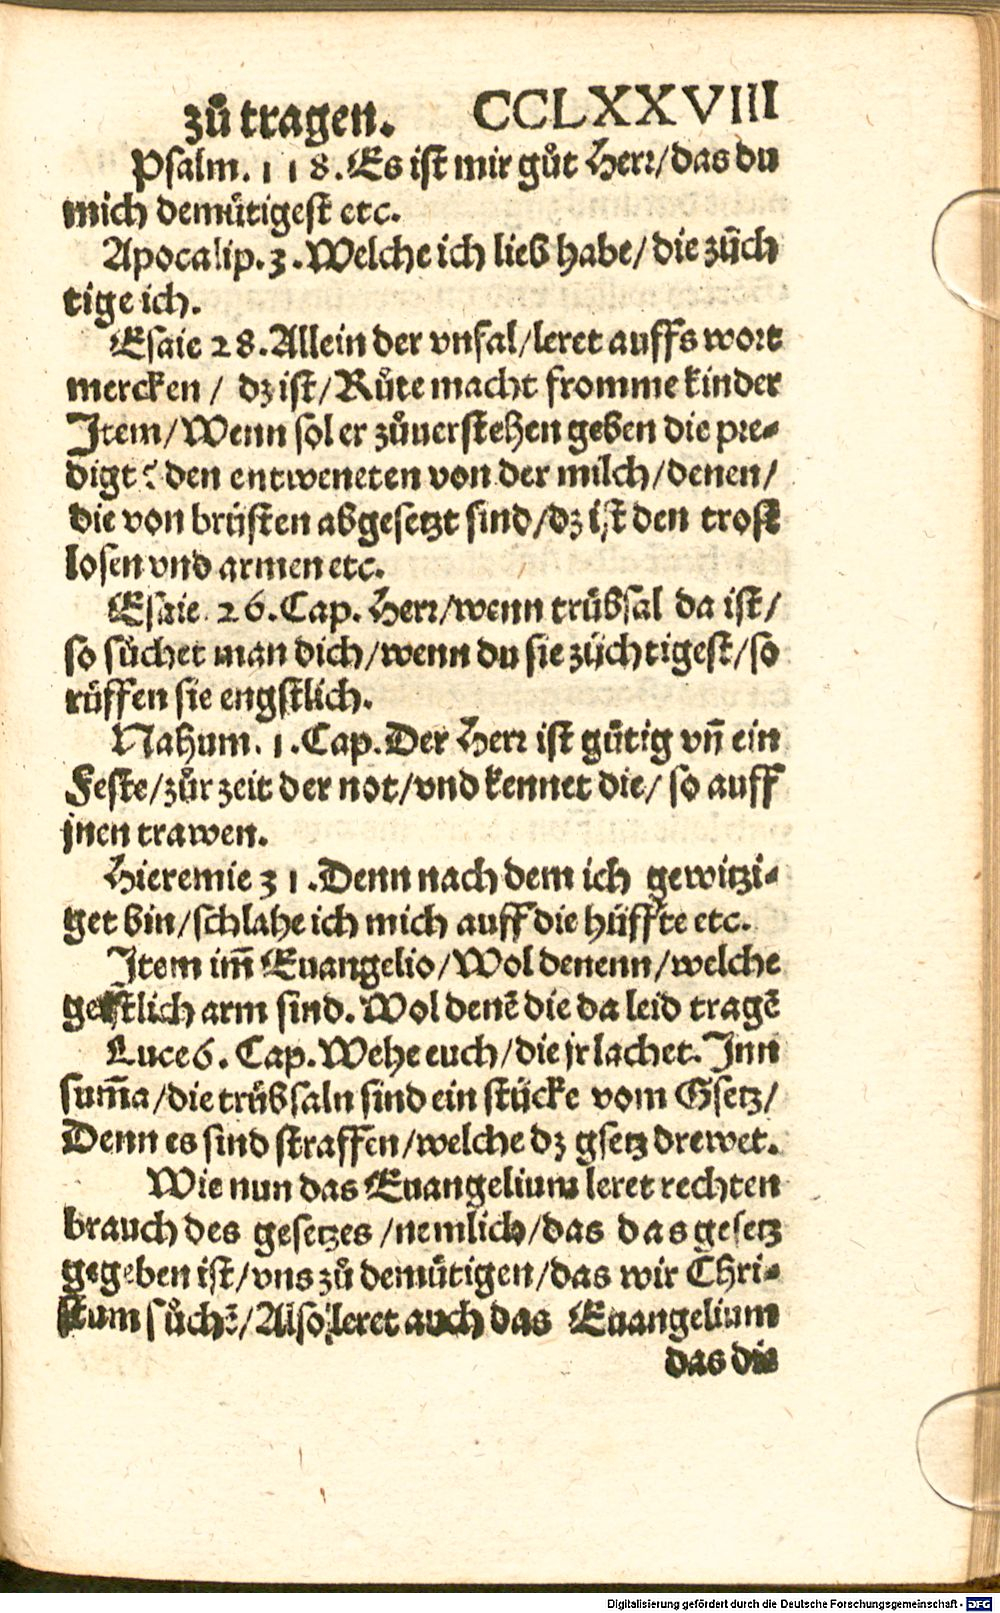 zů tragen. CCLXXVIII
Psalm. 118. Es ist mir gůt Herr/das du
mich demütigest etc.
Apocalip. 3. Welche ich lieb habe/die züch
tige ich.
Esaie 28. Allein der vnfal/leret auffs wort
mercken / dz ist/Růte macht fromme kinder
Item/Wenn sol er zůuerstehen geben die pre⸗
digt? den entweneten von der milch/denen/
die von brüsten abgesetzt sind/dz ist den trost
losen vnd armen etc.
Esaie. 26. Cap. Herr/wenn trübsal da ist/
so sůchet man dich/wenn du sie züchtigest/so
rüffen sie engstlich.
Nahum. 1. Cap. Der Herr ist gütig vñ ein
Feste/zůr zeit der not/vnd kennet die/ so auff
jnen trawen.
Hieremie 31. Denn nach dem ich gewitzi⸗
get bin/schlahe ich mich auff die hüffte etc.
Item im̄ Euangelio/Wol denenn/welche
geistlich arm sind. Wol denē die da leid tragē
Luce 6. Cap. Wehe euch/die jr lachet. Inn
sum̄a/die trübsaln sind ein stücke vom Gsetz/
Denn es sind straffen/welche dz gsetz drewet.
Wie nun das Euangelium leret rechten
brauch des gesetzes /nemlich/das das gesetz
gegeben ist/vns zů demütigen/das wir Chri⸗
stum sůchē/Also leret auch das Euangelium
das die
Digitalisierung gefördert durch die Deutsche Forschungsgemeinschaft - DFG